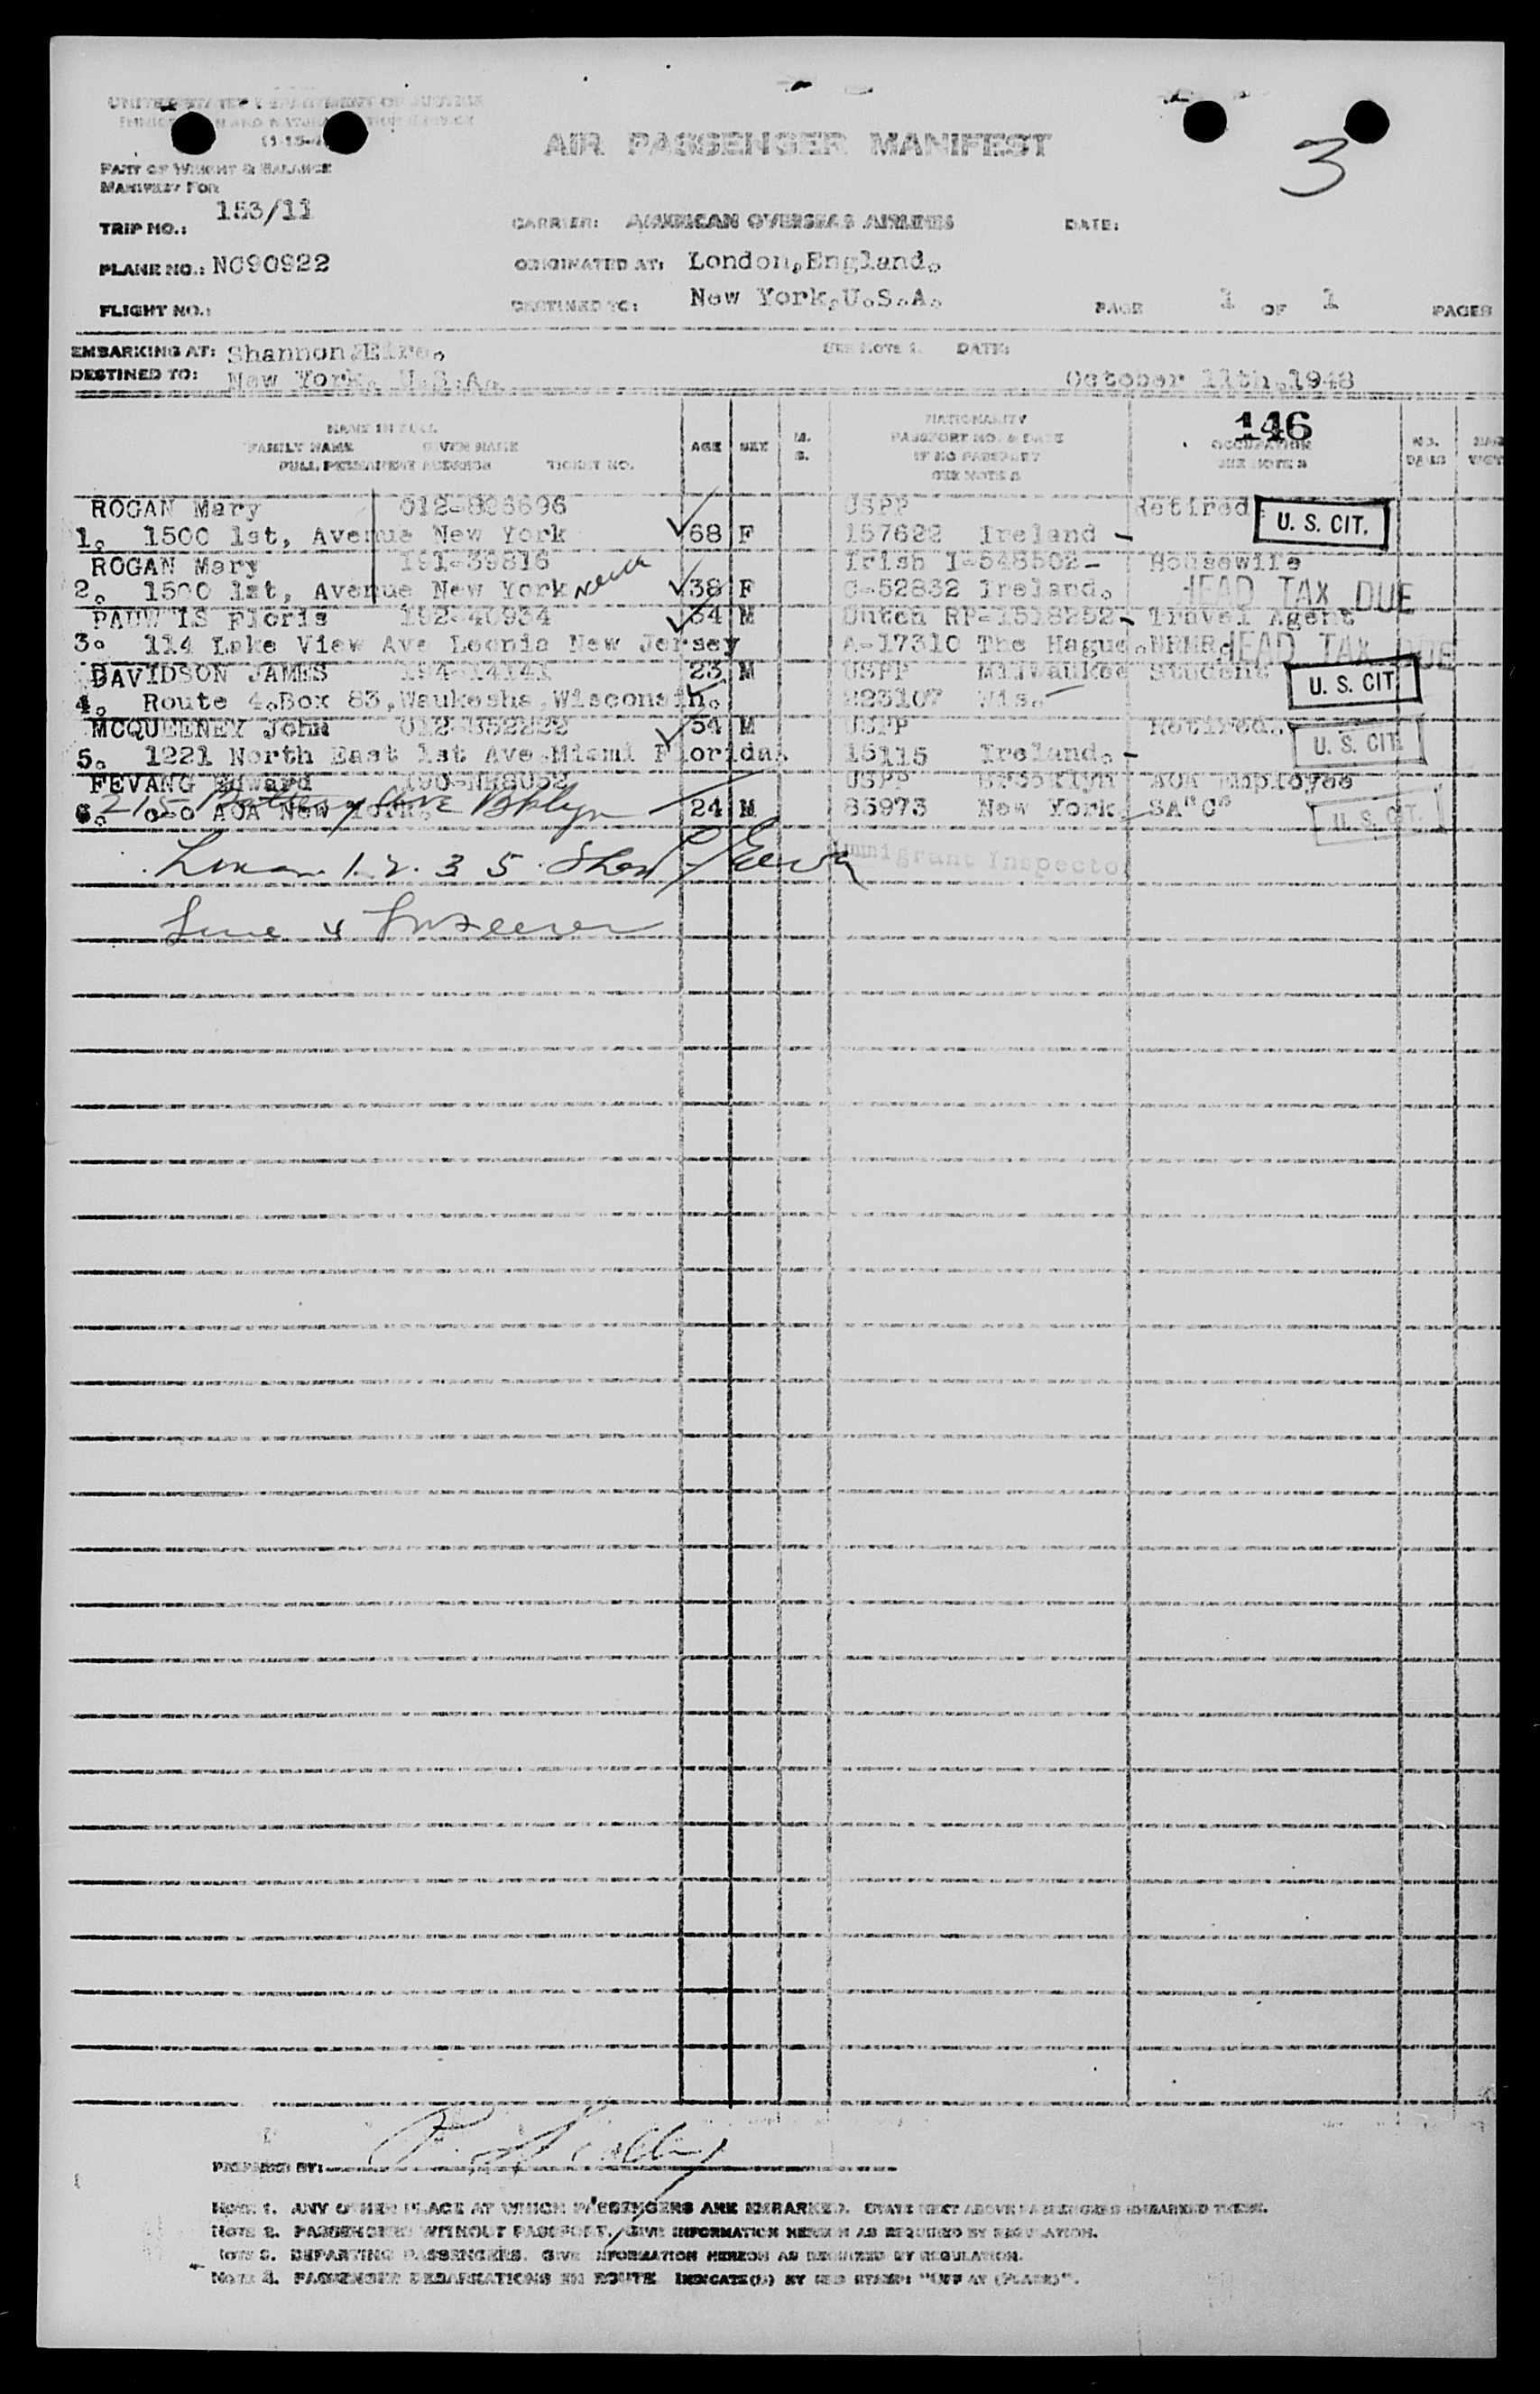 UNITED STATES DEPARTMENT OF JUSTICE
IMMIGRATION AND NATURALIZATION SERVICE
AIR PASSENGER MANIFEST
3
PART OF WEIGHT & BALANCE
MANIFEST FOR
TRIP NO.: 153/11
CARRIER: AMERICAN OVERSEAS AIRLINES DATE:
PLANE NO.: NC90922 ORIGINATED AT: London,England.
FLIGHT NO.: DESTINED TO: New York,U.S.A. PAGE 1 OF 1 PAGES
EMBARKING AT: Shannon,Eire. SEE NOTE 1. DATE:
DESTINED TO: New York, U.S.A. October 11th,1948
146
NAME IN FULL NATIONALITY
FAMILY NAME GIVEN NAME AGE SEX M. S. PASSPORT NO. & DATE OCCUPATION NO.
FULL PERMANENT ADDRESS TICKET NO. IF NO PASSPORT SEE NOTE 3
SEE NOTE 2
ROGAN Mary USPP Retired U. S. CIT.
1. 1500 1st, Avenue New York 68 F 157622 Ireland
ROGAN Mary 191-39816 Irish I-548502 Housewife
2. 1500 1st, Avenue New York 38 F C-52832 Ireland. HEAD TAX DUE
Floris 192-40934 34 M Dutch RP-1518252 Travel Agent
3. 114 Lake View Ave Leonia New Jersey A-17310 The Hague. HEAD TAX DUE
DAVIDSON JAMES 194-14141 23 M USPP Milwaukee Student U. S. CIT.
4. Route 4.Box 83,Waukesha,Wisconsin. 223107 Wis.
MCQUEENEY John 012-352222 54 M USPP Retired. U. S. CIT.
5. 1221 North East 1st Ave Miami Florida. 15115 Ireland.
FEVANG Edward USPP Brooklyn AOA Employee
6. 215 Ave Bklyn c-o AOA New York. 24 M 85973 New York. SA"C" U. S. CIT.
1. 2. 3 5.
Immigrant Inspector
Line 4
PREPARED BY:
NOTE 1. ANY OTHER PLACE AT WHICH PASSENGERS ARE EMBARKED. STATE NEXT ABOVE PASSENGERS EMBARKED THERE.
NOTE 2. PASSENGERS WITHOUT PASSPORT, GIVE INFORMATION HEREON AS REQUIRED BY REGULATION.
NOTE 3. DEPARTING PASSENGERS. GIVE INFORMATION HEREON AS REQUIRED BY REGULATION.
NOTE 4. PASSENGER DEBARKATIONS EN ROUTE INDICATE(D) BY RED STAMP: "OFF AT (PLACE)".